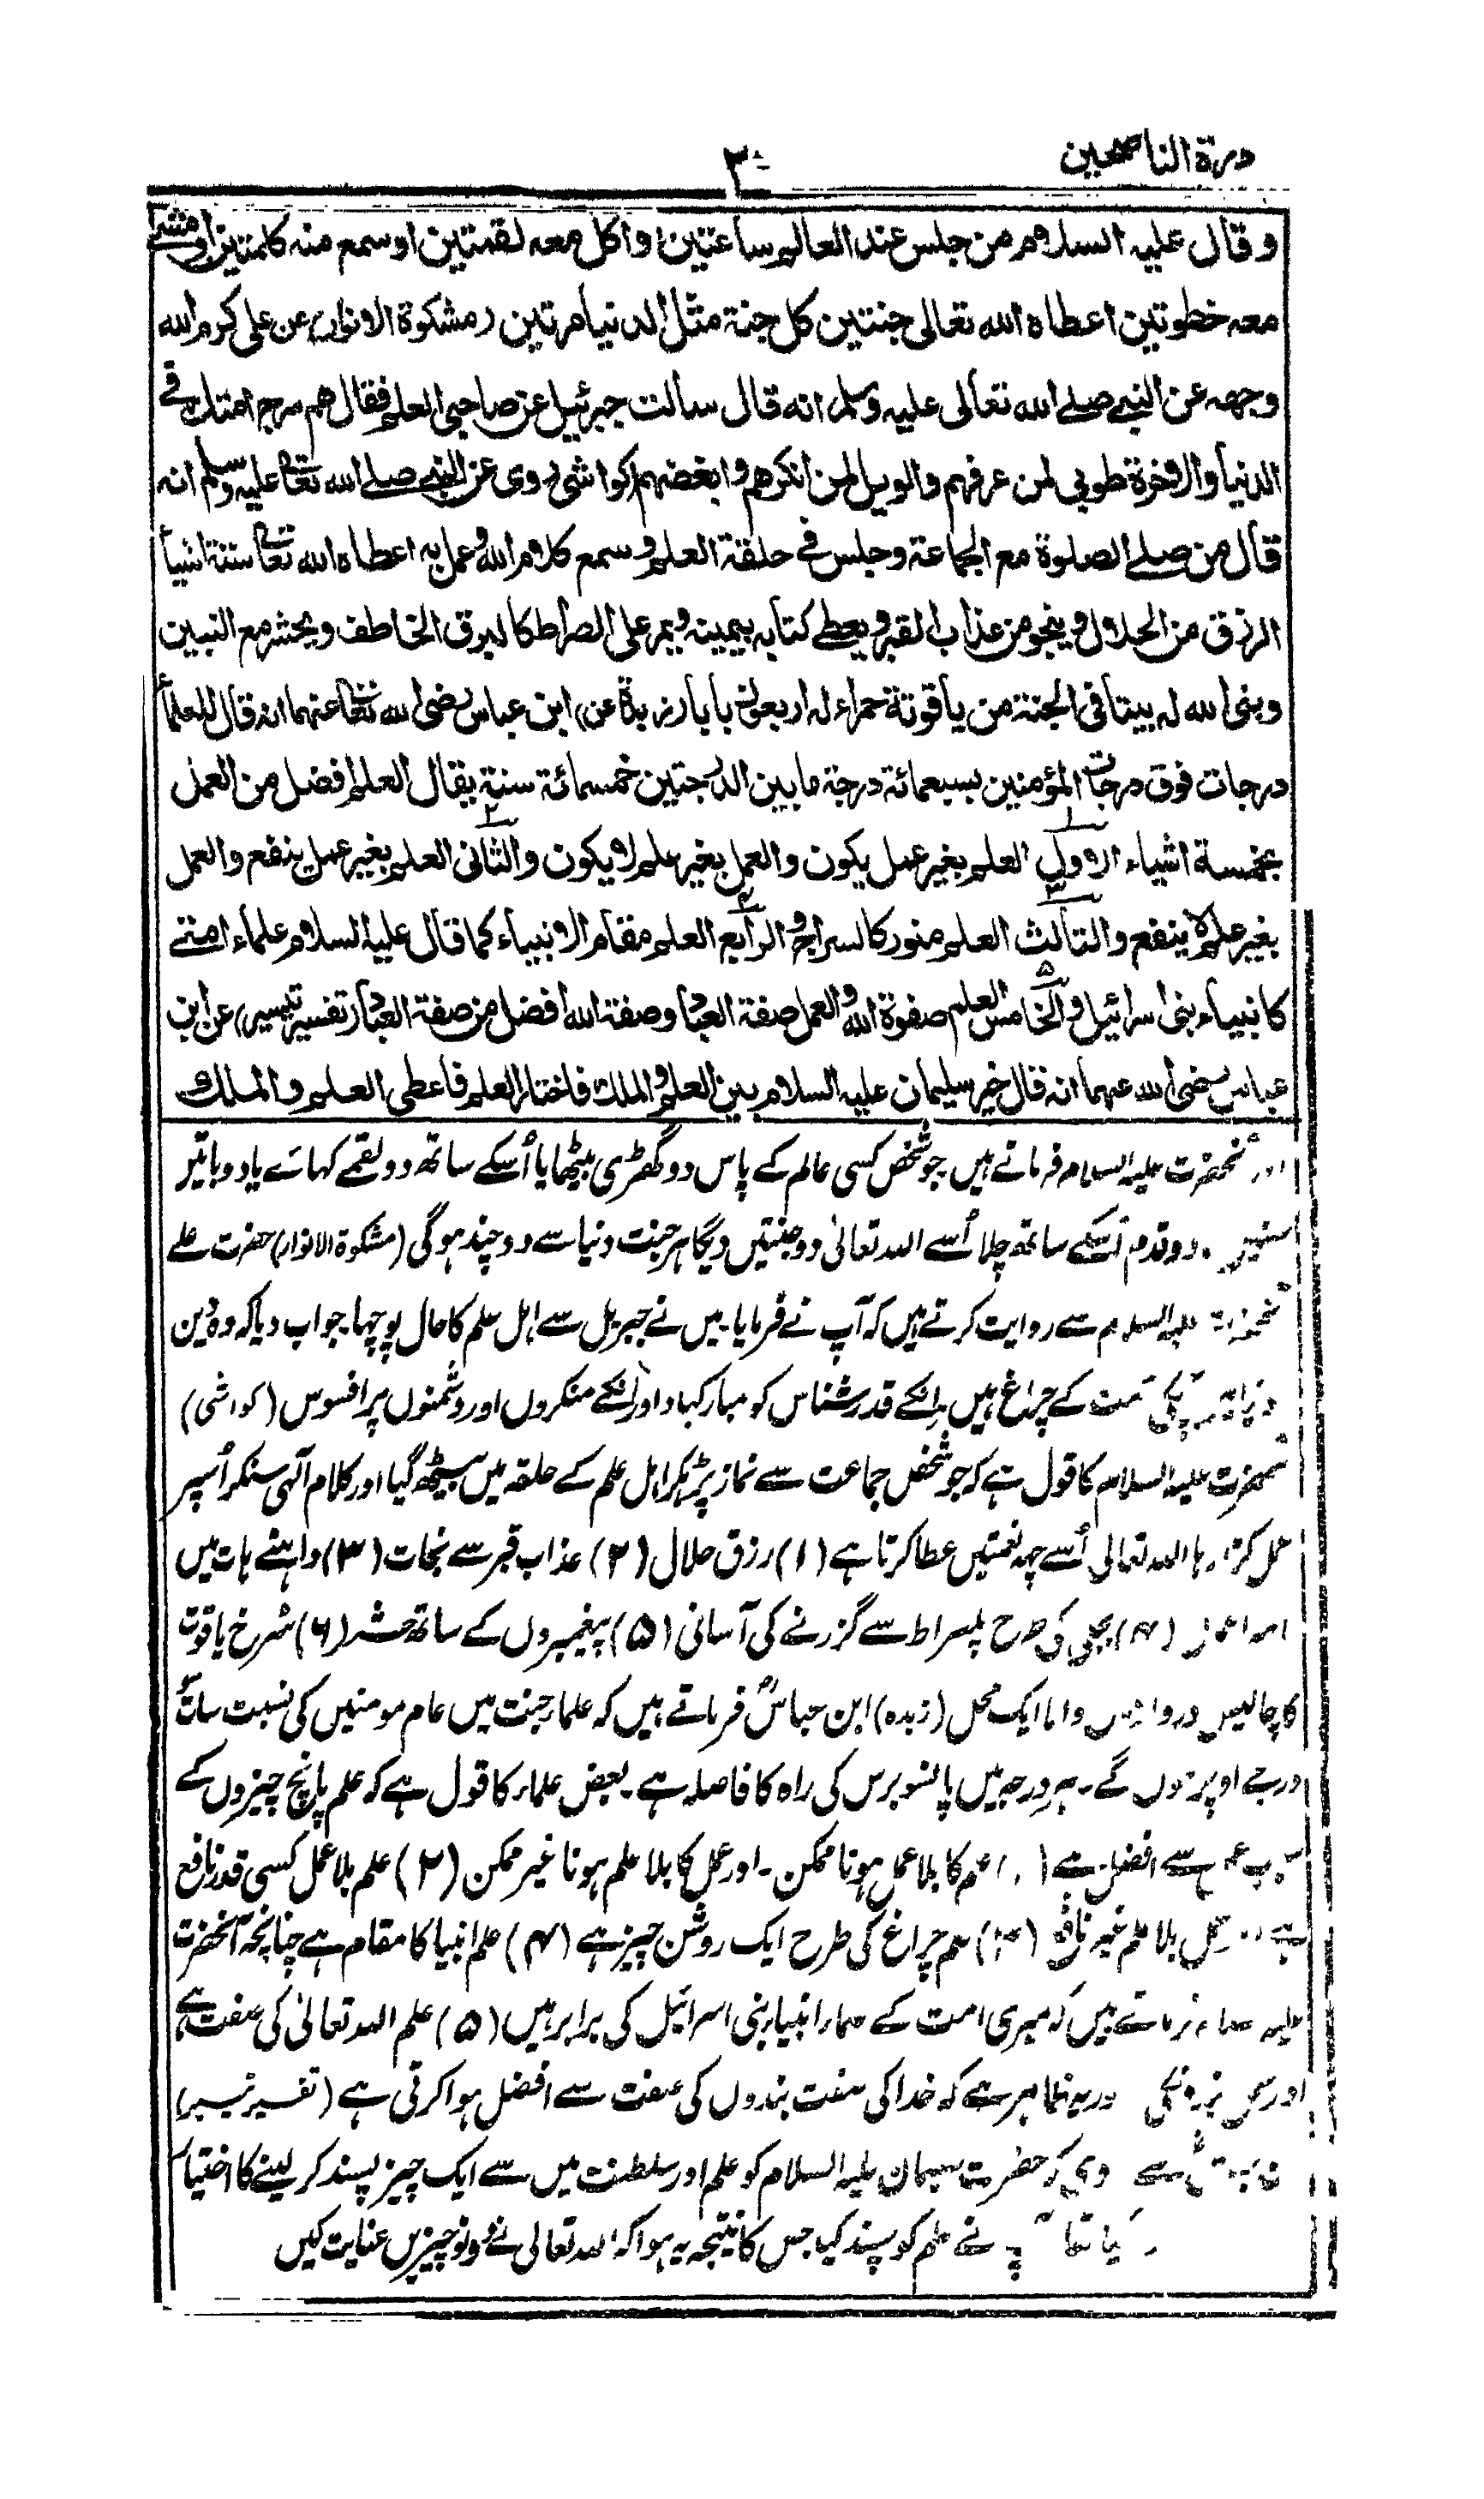 درة الناصحين
وقال عليه السلام من جلس عند العالم ساعتين او اكل معه لقمتين او سمع منه كلمتين او مشى
معه خطوتين اعطاه الله تعالى جنتين كل جنة مثل الدنيا مرتين (مشكوة الانوار) عن على كرم الله
وجهه عن النبى صلى الله تعالى عليه وسلم انه قال سألت جبرئيل عن صاحبى العلم فقال هم سرج امتك فى
الدنيا والاخرة طوبى لمن عرفهم والويل لمن انكرهم وابغضهم (كواشى) روى عن النبى صلى الله تعالى عليه وسلم انه
قال من صلى الصلوة مع الجماعة وجلس فى حلقة العلم وسمع كلام الله وعمل به اعطاه الله تعالى ستة اشياء
الرزق من الحلال وينجو من عذاب القبر ويعطى كتابه بيمينه ويمر على الصراط كالبرق الخاطف ويحشر مع النبيين
وبنى الله له بيتا فى الجنة من ياقوتة حمراء له اربعون بابا (زبدة) عن ابن عباس رضى الله تعالى عنهما انه قال للعلماء
درجات فوق درجات المؤمنين بسبعمائة درجة ما بين الدرجتين خمسمائة سنة يقال العلم افضل من العمل
بخمسة اشياء الاول العلم بغير عمل يكون والعمل بغير علم لا يكون والثانى العلم بغير عمل ينفع والعمل
بغير علم لا ينفع والثالث العلم منور كالسراج و الرابع العلم مقام الانبياء كما قال عليه السلام علماء امتى
كانبياء بنى اسرائيل والخامس العلم صفوة الله والعمل صفة العباد وصفة الله افضل من صفة العباد (تفسير تيسير) عن ابن
عباس رضى الله عنهما انه قال خير سليمان عليه السلام بين العلم والملك فاختار العلم فاعطى العلم والملك
اور آنحضرت علیہ السلام فرماتے ہیں جو شخص کسی عالم کے پاس دو گھڑی بیٹھا یا اُسکے ساتھ دو لقمے کہائے یا دو باتیں
سنیں دو قدم اُسکے ساتھ چلا اُسے اللہ تعالیٰ دو جنتیں دیگا ہر جنت دنیا سے دو چند ہوگی (مشکوۃ الانوار) حضرت علے
آنحضرت علیہ السلام سے روایت کرتے ہیں کہ آپ نے فرمایا۔ میں نے جبریل سے اہل علم کا حال پوچھا جواب دیا کہ وہ دین
کے چراغ ہیں انکے قدر شناس کو مبارکباد اور انکے منکروں اور دشمنوں پر افسوس (کواشی)
آنحضرت علیہ السلام کا قول ہے کہ جو شخص جماعت سے نماز پڑہکر اہل علم کے حلقہ میں بیٹھ گیا اور کلام الٰہی سنکر اُسپر
عمل کرتا رہا اللہ تعالی اُسے چہ نعمتیں عطا کرتا ہے (۱) رزق حلال (۲) عذاب قبر سے نجات (۳) داہنے ہات میں
(۴) بجلی کی طرح پلصراط سے گزرنے کی آسانی (۵) پیغمبروں کے ساتھ حشر (۶) سُرخ یاقوت
کا چالیس ایک محل (زبدہ) ابن عباسؓ فرماتے ہیں کہ علما جنت میں عام مومنین کی نسبت سات سو
درجے اوپر ہوں گے۔ ہر درجہ میں پانسو برس کی راہ کا فاصلہ ہے۔ بعض علماء کا قول ہے کہ علم پانچ چیزوں کے
سے افضل ہے علم کا بلا عمل ہونا ممکن۔ اور عمل کا بلا علم ہونا غیر ممکن (۲) علم بلا عمل کسی قدر نافع
ہے عمل بلا علم غیر نافع (۳) علم چراغ کی طرح ایک روشن چیز ہے (۴) علم انبیا کا مقام ہے چنانچہ آنحضرت
علیہ فرماتے ہیں کہ میری امت کے علما انبیا بنی اسرائیل کی برابر ہیں (۵) علم اللہ تعالیٰ کی صفت ہے
اور ظاہر ہے کہ خدا کی صفت بندوں کی صفت سے افضل ہوا کرتی ہے (تفسیر تیسیر)
سے کہ حضرت سلیمان علیہ السلام کو علم اور سلطنت میں سے ایک چیز پسند کر لینے کا اختیار
نے علم کو پسند کیا جس کا نتیجہ یہ ہوا کہ اللہ تعالی نے دونو چیزیں عنایت کیں